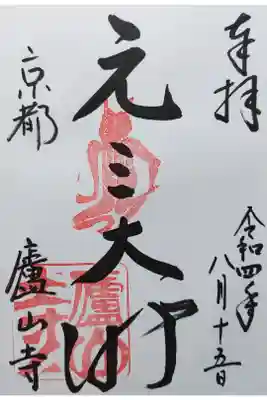 奉拝
令和四年
八月十五日
元三大師
京都
廬山寺